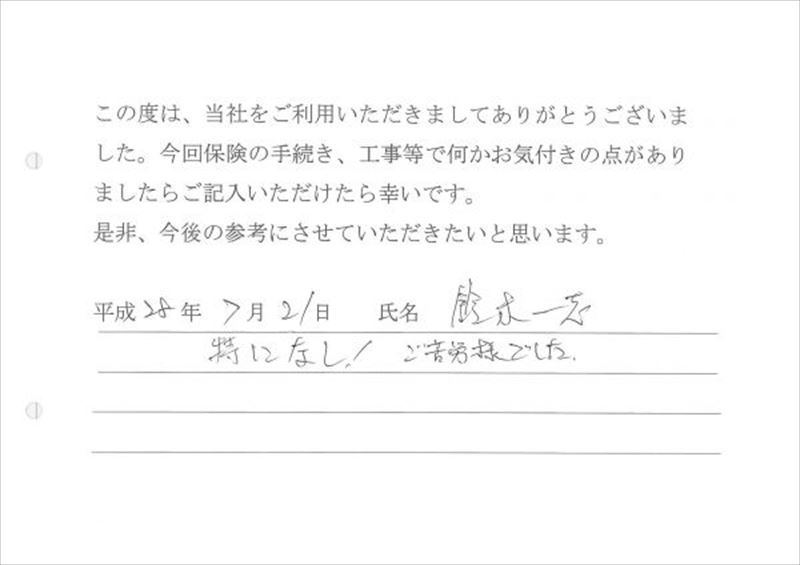 この度は、当社をご利用いただきましてありがとうございま
した。今回保険の手続き、工事等で何かお気付きの点があり
ましたらご記入いただけたら幸いです。
是非、今後の参考にさせていただきたいと思います。
平成28年 7月21日 氏名 鈴木一志
特になし! ご苦労様でした。